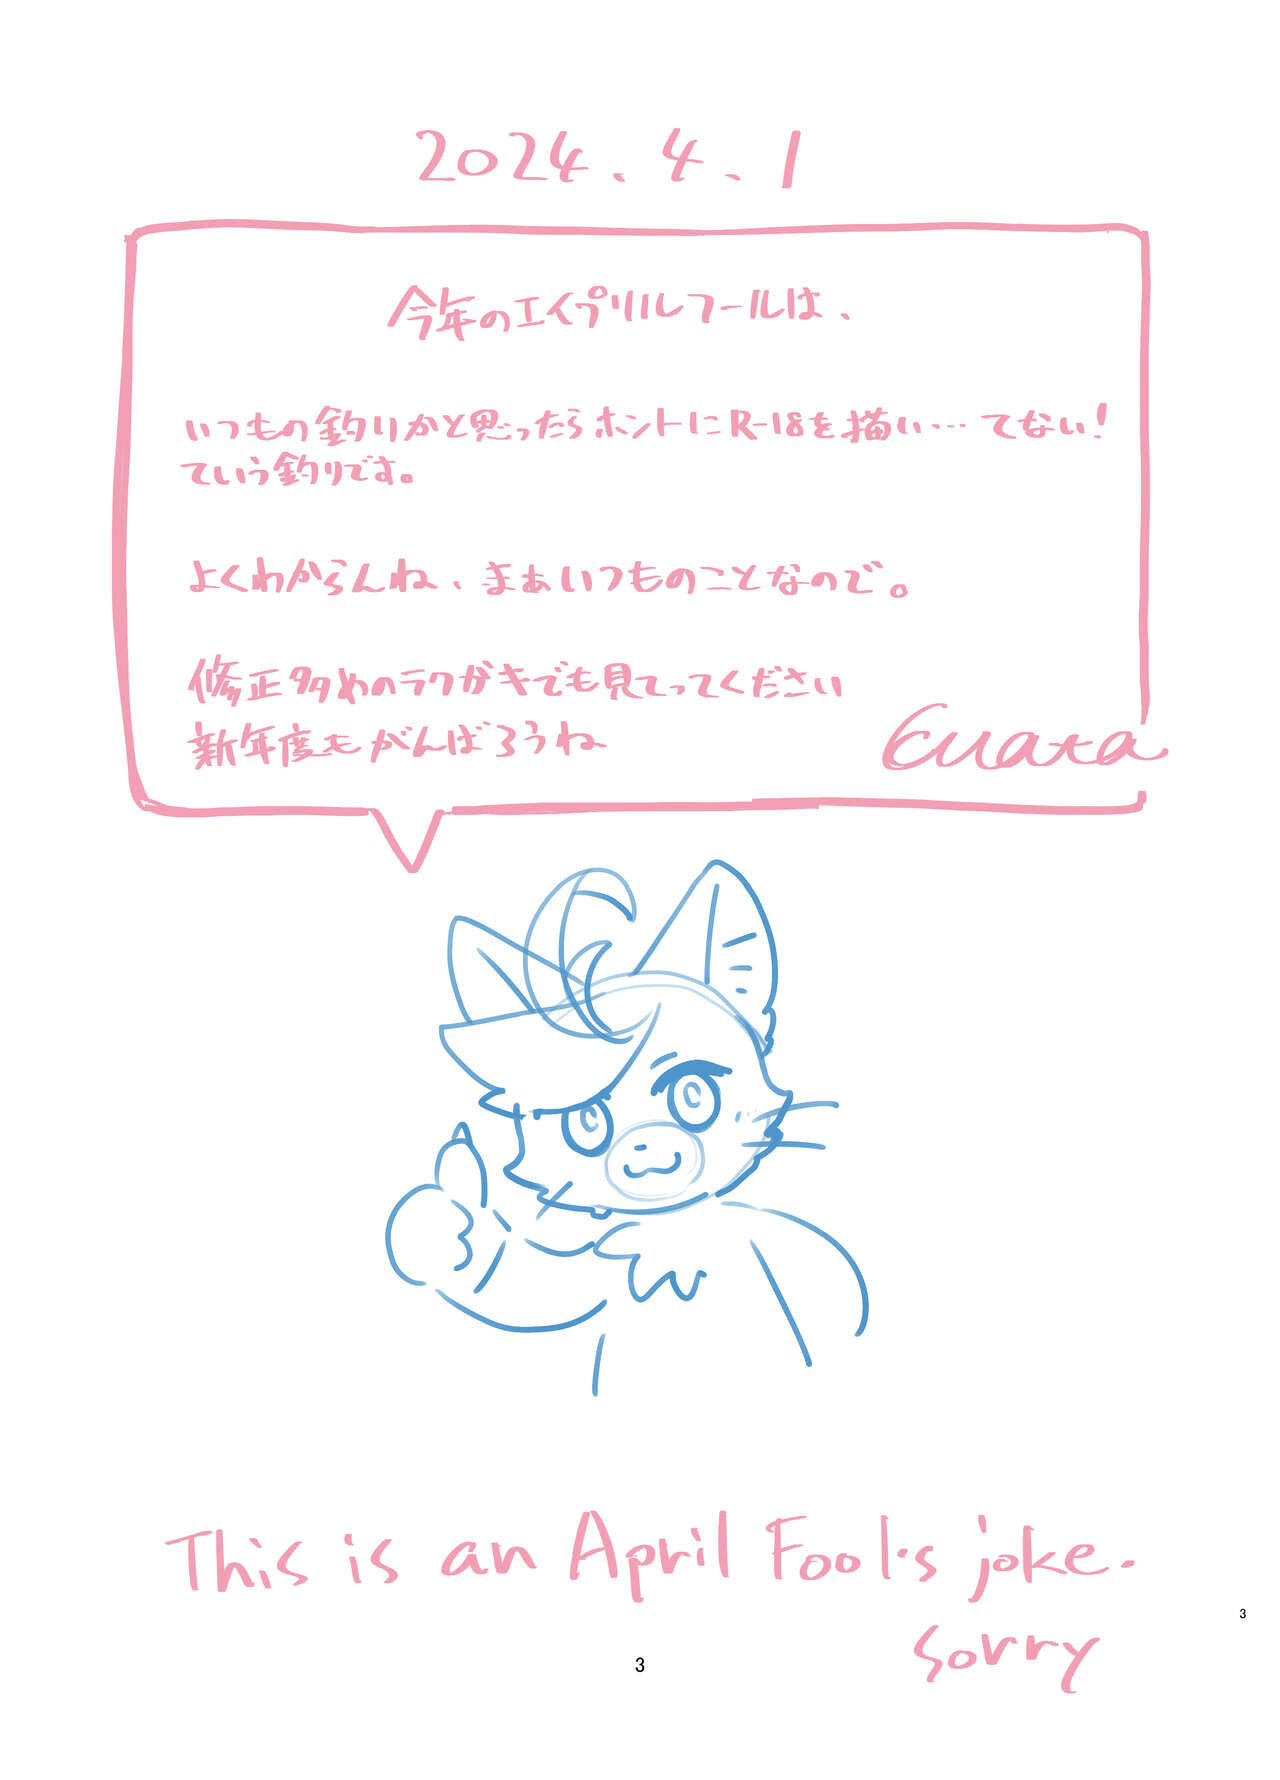 2024.4.1
今年のエイプリルフールは、
いつもの釣りかと思ったらホントにR-18を描い…てない!
ていう釣りです。
よくわからんね、まぁいつものことなので。
修正多めのラクガキでも見てってください
新年度もがんばろうね
This is an April Fool's joke.
sorry
3
3